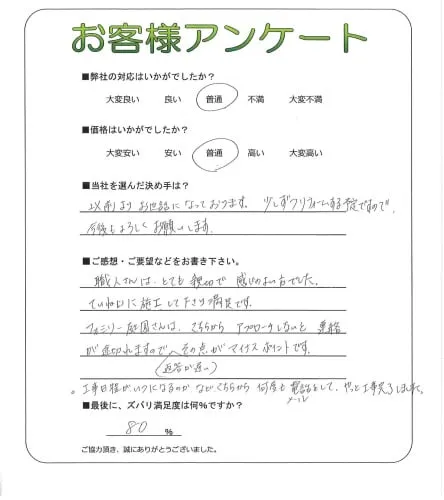 お客様アンケート
■弊社の対応はいかがでしたか?
大変良い 良い 普通 不満 大変不満
■価格はいかがでしたか?
大変安い 安い 普通 高い 大変高い
■当社を選んだ決め手は?
以前よりお世話になっております。少しずつリフォームする予定ですので、
今後もよろしくお願いします。
■ご感想・ご要望などをお書き下さい。
職人さんは、とても親切で感じのよい方でした。
ていねいに施工して下さり満足です。
ファミリー庭園さんは、こちらからアプローチしないと連絡
が途切れますので、その点がマイナスポイントです。
(返答が遅い)
。工事日程がいつになるのかなどこちらから何度も電話をして、やっと工事完了しました。
メール
■最後に、ズバリ満足度は何%ですか?
80 %
ご協力頂き、誠にありがとうございました。